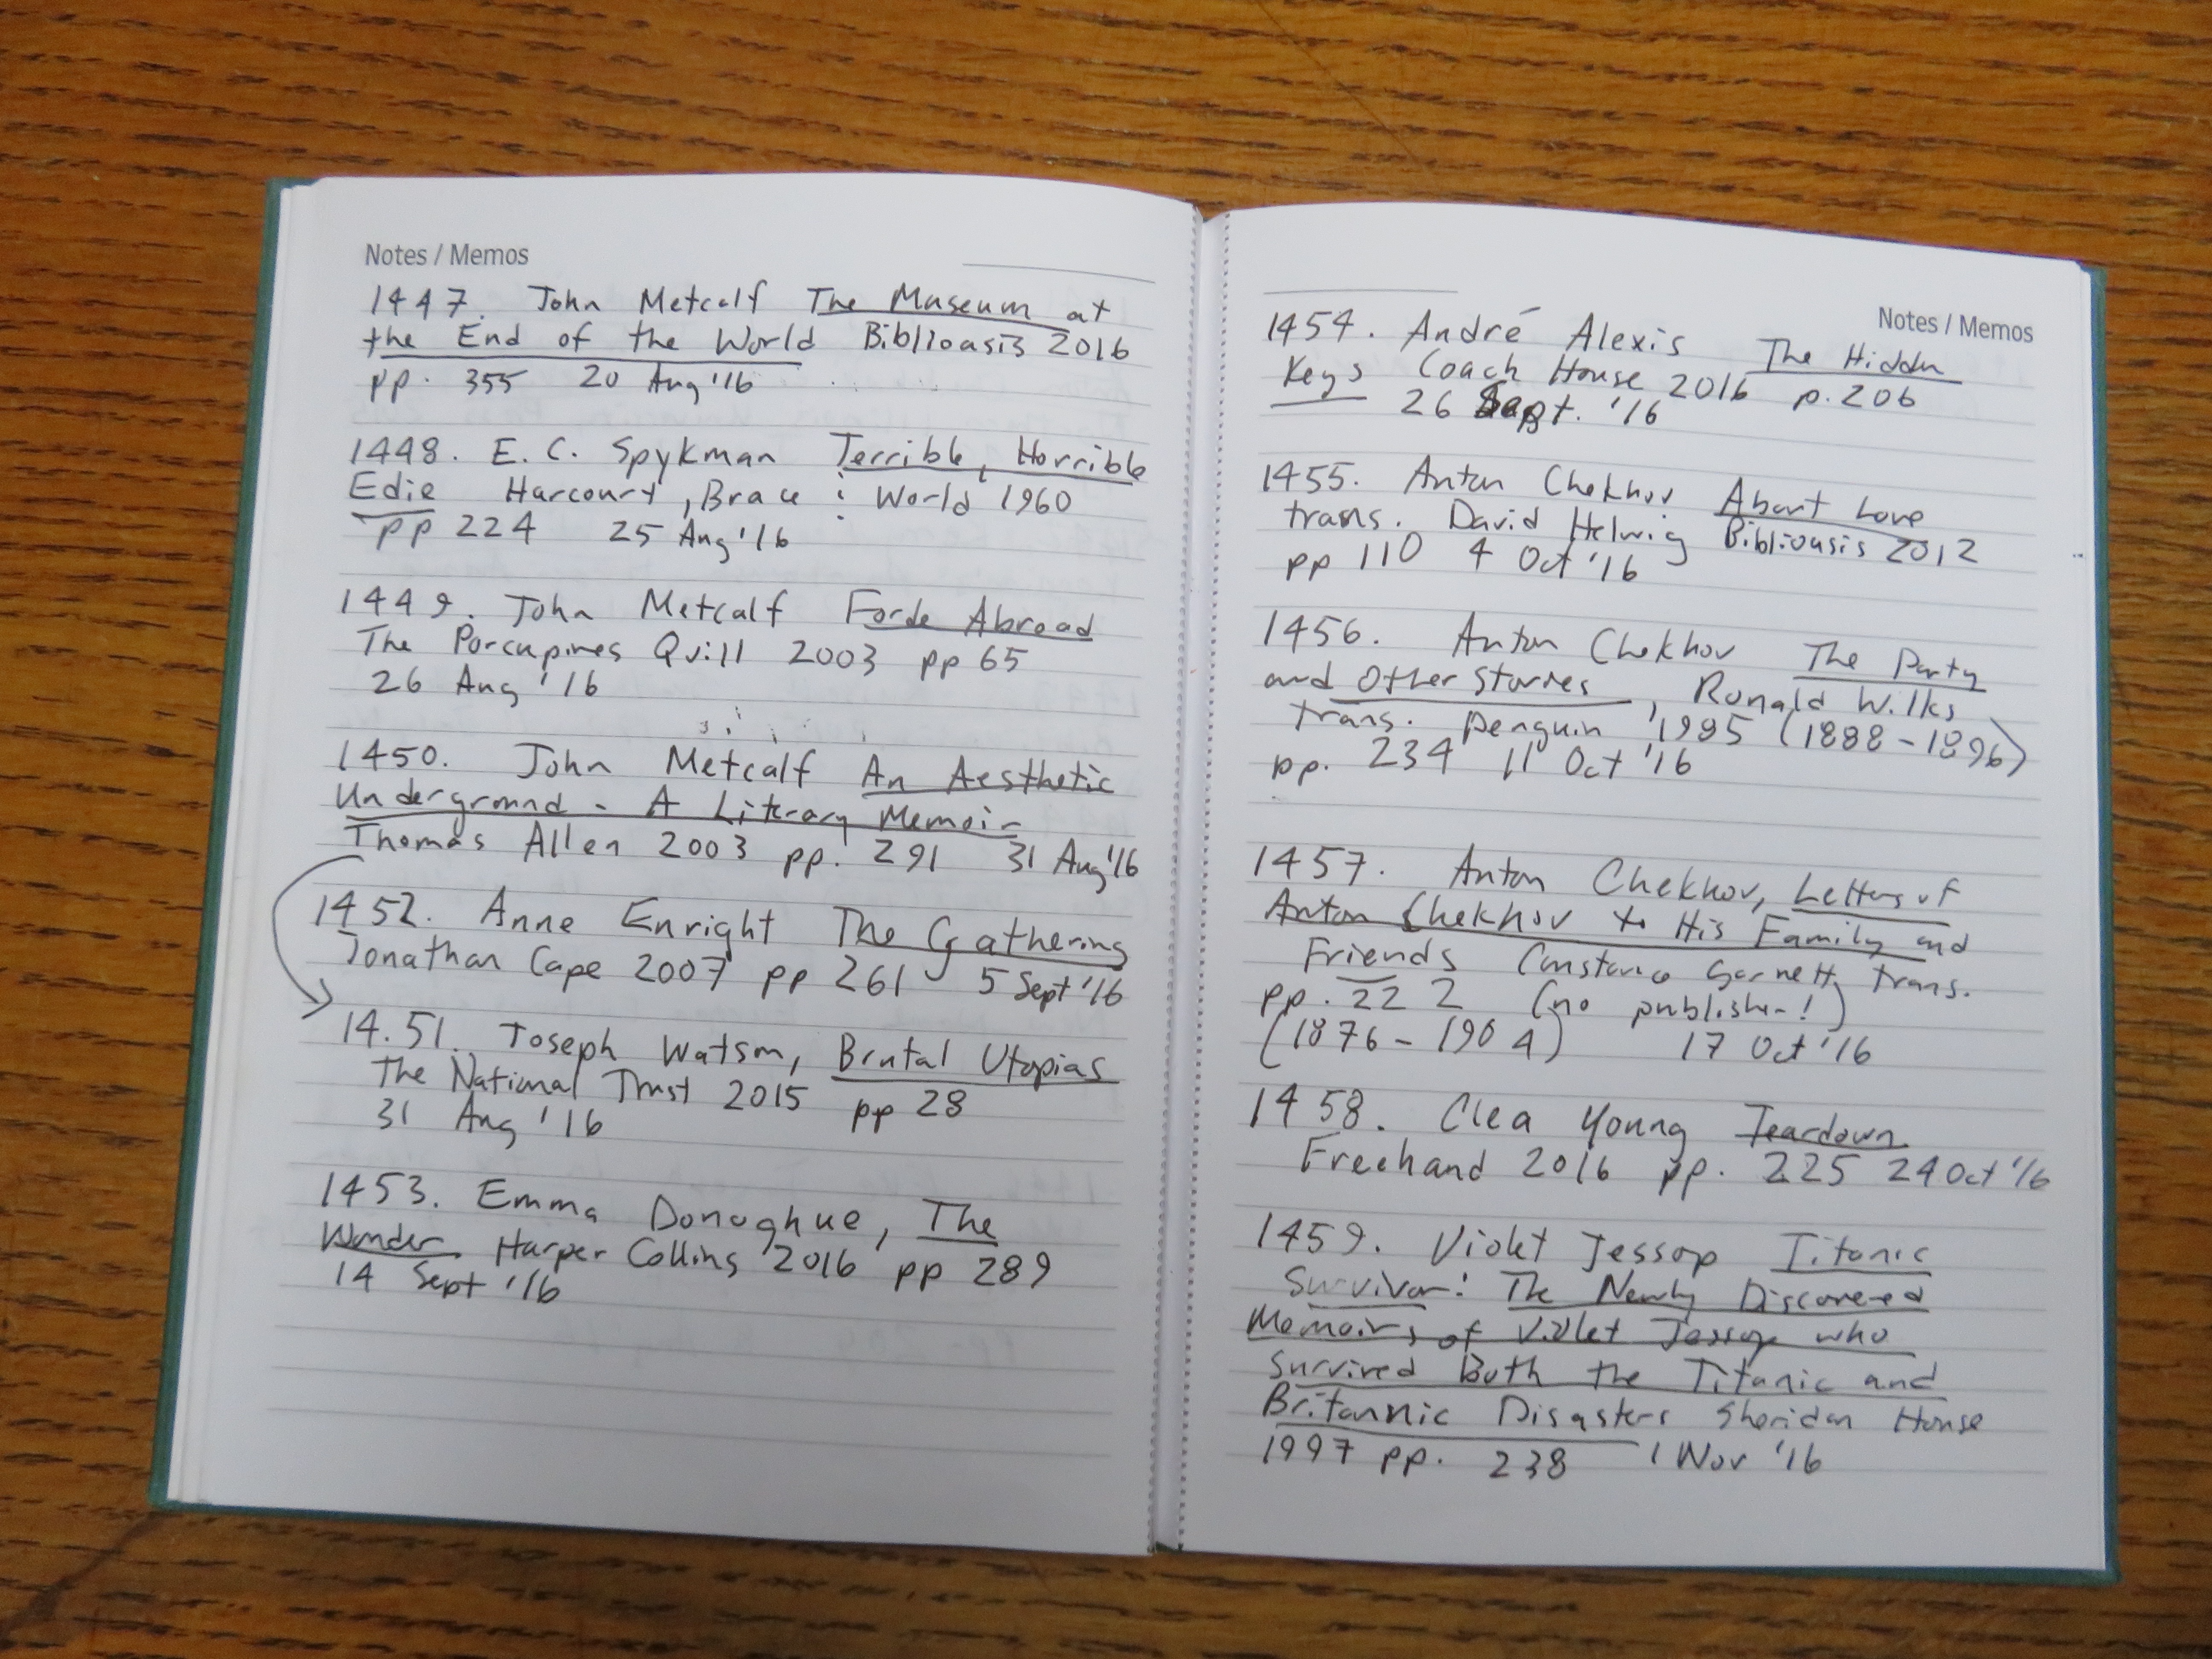 Notes / Memos
1447. John Metcalf The Museum at
the End of the World Biblioasis 2016
pp. 355 20 Aug '16
1448. E. C. Spykman Terrible, Horrible
Edie Harcourt, Brace & World 1960
pp 224 25 Aug '16
1449. John Metcalf Forde Abroad
The Porcupines Quill 2003 pp 65
26 Aug '16
1450. John Metcalf An Aesthetic
Underground - A Literary Memoir
Thomas Allen 2003 pp. 291 31 Aug '16
1452. Anne Enright The Gathering
Jonathan Cape 2007 pp 261 5 Sept '16
14.51. Joseph Watson, Brutal Utopias
The National Trust 2015 pp 28
31 Aug '16
1453. Emma Donoghue, The
Wonder Harper Collins 2016 pp 289
14 Sept '16
Notes / Memos
1454. André Alexis The Hidden
Keys Coach House 2016 p. 206
26 Sept. '16
1455. Anton Chekhov About Love
trans. David Helwig Biblioasis 2012
pp 110 4 Oct '16
1456. Anton Chekhov The Party
and Other Stories, Ronald Wilks
trans. Penguin 1985 (1888-1896)
pp. 234 11 Oct '16
1457. Anton Chekhov, Letters of
Anton Chekhov to His Family and
Friends Constance Garnett, trans.
pp. 222 (no publisher!)
(1876-1904) 17 Oct '16
1458. Clea Young Teardown
Freehand 2016 pp. 225 24 Oct '16
1459. Violet Jessop Titanic
Survivor: The Newly Discovered
Memoirs of Violet Jessop who
Survived Both the Titanic and
Britannic Disasters Sheridan House
1997 pp. 238 1 Nov '16